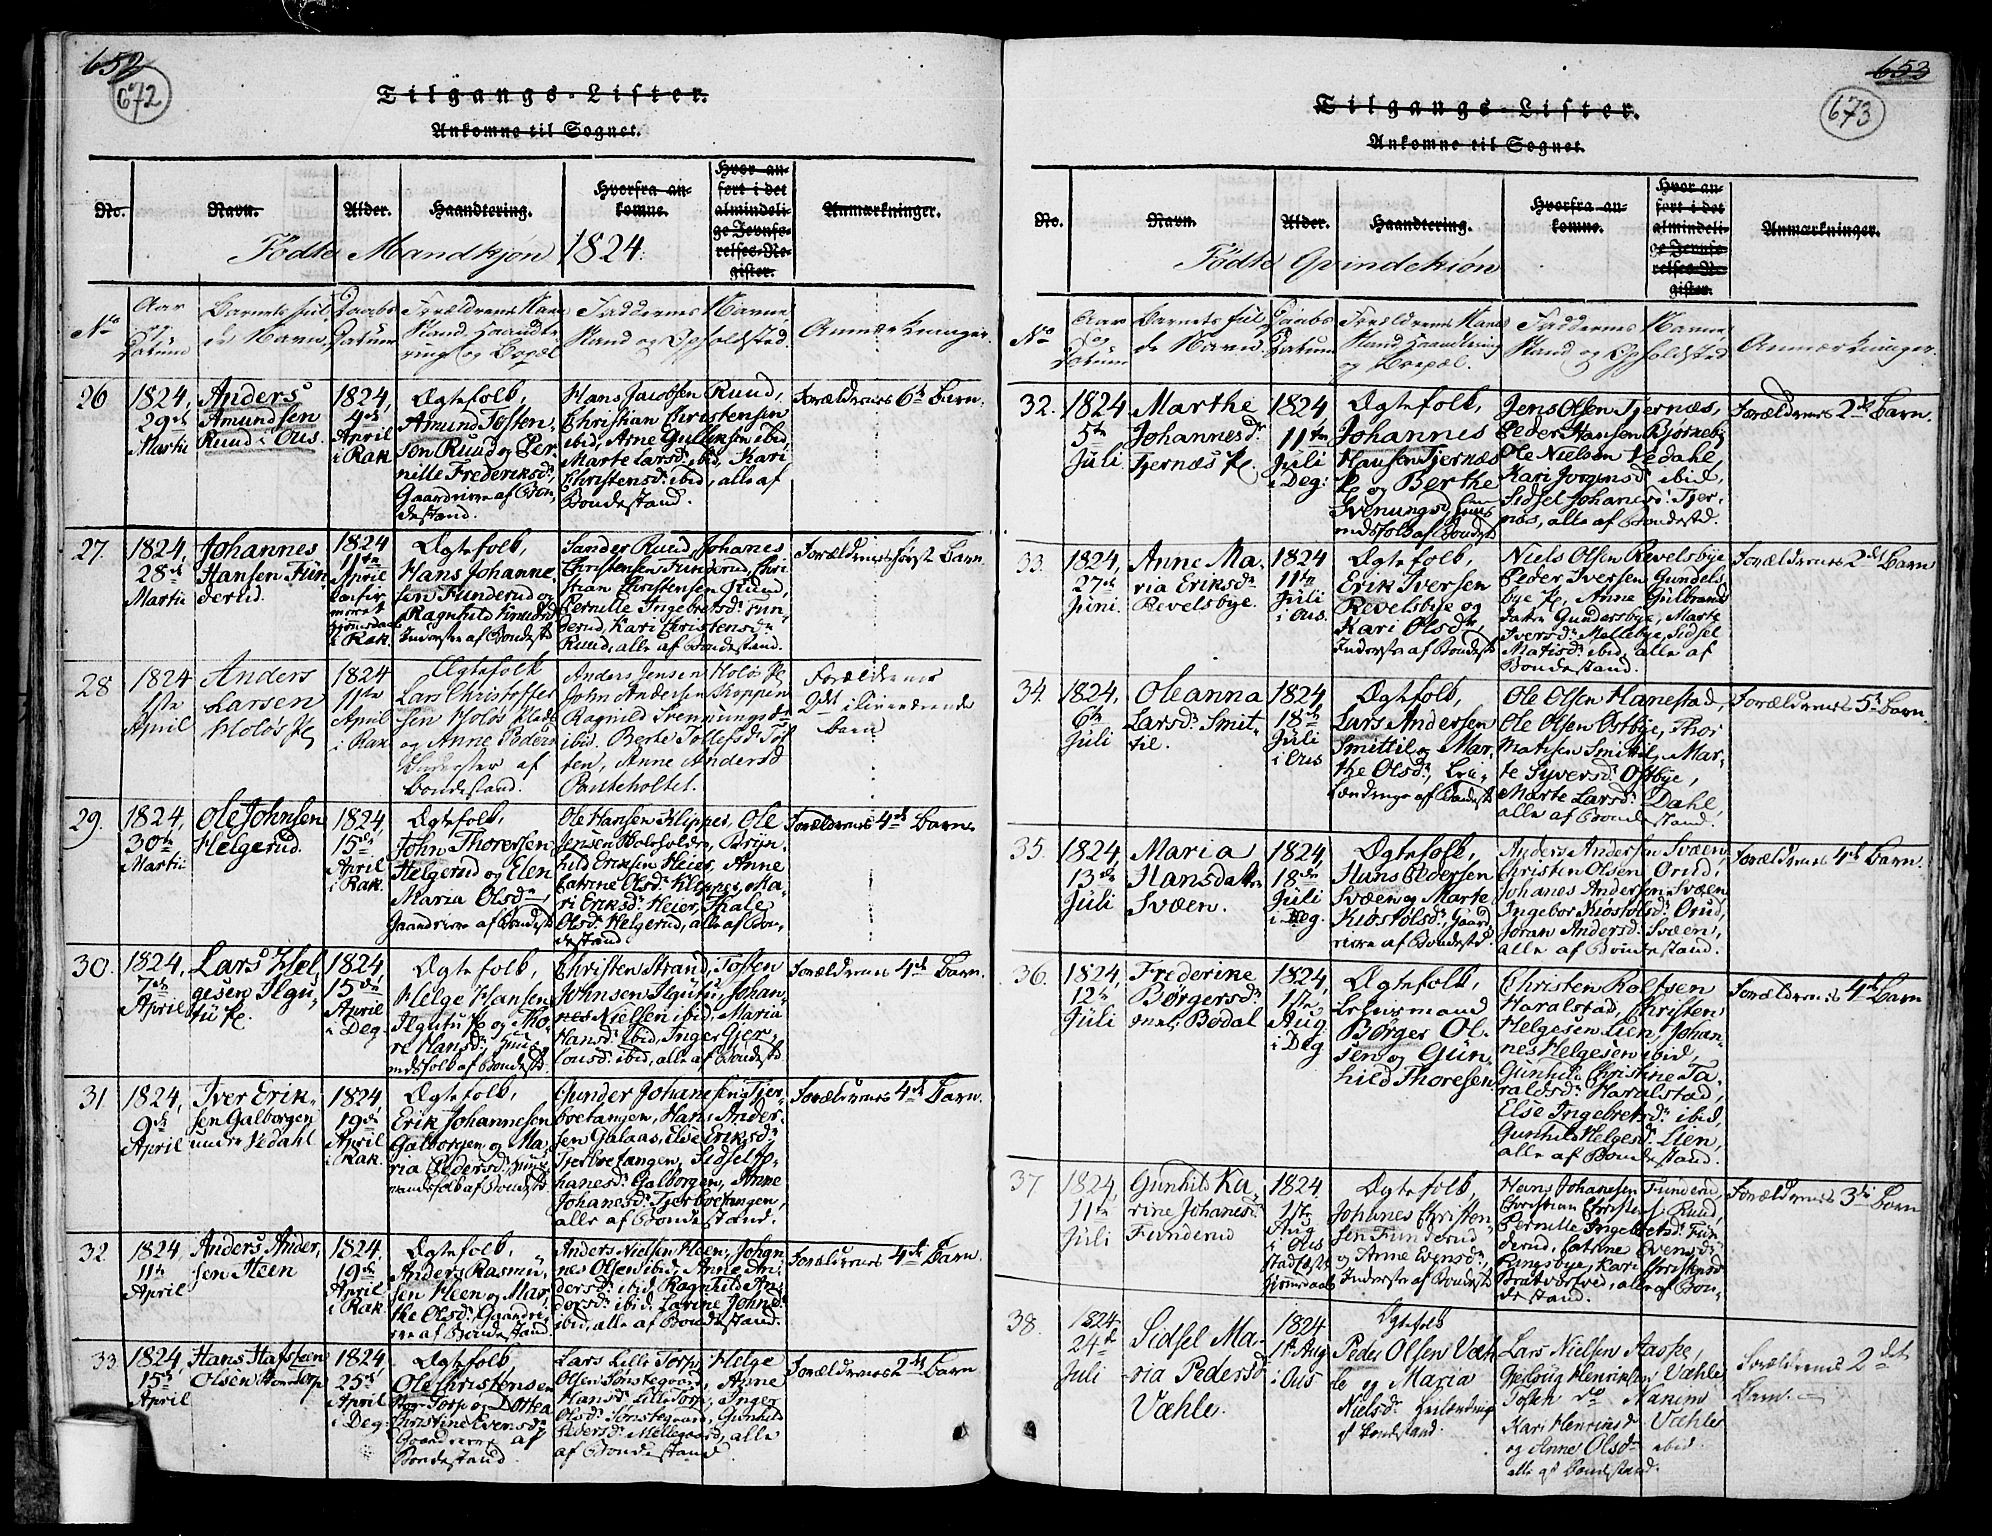 652
672
Tilgangs-Lister.
Ankomne til Sognet.
No.
Navn.
Alder.
Haandtering.
Hvorfra an-
komne.
Hvor an-
ført i det
almindeli-
ge Jevnfø-
relses-Re-
gister.
Anmærkninger.
Fødte Mandkjøn 1824.
No
Aar
og
Datum
Barnets ful-
de Navn.
Daabs
Datum
Forældrenes Navn
Stand, Haandte-
ring og Bopæl
Faddernes Navne
Stand og Opholdsted.
Anmærkninger
26
1824,
29de
Martii
Anders
Amundsen
Ruud i Ous
1824,
4de
April
i Rak.
Ægtefolk,
Amund Tosten-
son Ruud og Per-
nille Frederiksdr,
Gaardmæ af Bon-
destand.
Hans Jacobsen Ruud,
Christian Christensen
ibid, Arne Gulliksen ibid,
Marte Larsdr ibid, Kari
Christensdr ibid, alle af
Bondestand.
Forældrenes 6te Barn.
27.
1824,
28de
Martii
Johannes
Hansen Fun-
derud.
1824
11te
April
Confir-
meret
i Rak.
Ægtefolk,
Hans Johanne-
sen Funderud og
Ragnhild Knudsdr
Inderster af Bondestd
Sander Ruud, Johanes
Christensen Funderud, Chri-
stian Christensen Ruud,
Pernille Ingebretsdr Fun-
derud, Kari Christensdr
Ruud, alle af Bondestand.
Forældrenes først Barn
28
1824
1ste
April
Anders
Larsen
Holøs Pl
1824
11te
April
i Rak
Ægtefolk
Lars Christoffer-
sen Holøs Plads
og Anne Peders
Inderster af
Bondestand.
Anders Jensen Holøs Pl
John Andersen Kloppen
Ragnild Svennungsdr
ibid. Berte Tollefsdr Tof-
ten, Anne Andersd
Panteholtet.
Forældrenes
2det i live værende
barn
29.
1824,
30te
Martii
Ole Johnsen
Helgerud.
1824,
15de
April
i Rak.
Ægtefolk,
John Thorersen
Helgerud og Elen
Maria Olsdr,
Gaardmæ af Bondestd
Ole Hansen Klippes, Ole
Jensen Boleholder, Bryn-
hild Eriksen Heier, Anne
Catrine Olsdr Kleppes, Ma-
ri Eriksdr Heier, Thale
Olsdr Helgerud, alle af Bon-
destand.
Forældrenes 4de Barn
30.
1824,
7de
April
Lars Hel-
gesen Ilgu-
tu Pl.
1824,
15de
April
i Deg
Ægtefolk,
Helge Hansen
Ilgutu Pl og Tho-
re Hansdr, Huus-
mdsfolk af Bondestd.
Christen Strand, Tosten
Johnsen Ilgutu, Johan-
nes Nielsen ibid, Maria
Hansdr ibid, Inger Gjer-
lousdr ibid, alle af Bondestd.
Forældrenes 4de Barn.
31
1824,
9de
April
Iver Erik-
sen Galborgen
under Vedahl
1824
19de
April
i Rak.
Ægtefolk,
Erik Johannesen
Galborgen og Ma-
ria Pedersdr, Huus-
mandsfolk af Bondestd
Gunder Johanesen Tjer-
boetangen, Hans Ander-
sen Galaas, Else Eriksdr
Tjerboetangen, Sidsel Jo-
hanesdr Galborgen, Anne
Johanesdr Tjerboetangen,
alle af Bondestand.
Forældrenes 4de Barn.
32
1824,
11te
April
Anders Ander-
sen Heen
1824,
19de
April
i Rak
Ægtefolk,
Anders Rasmu-
sen Heen og Mar-
the Olsdr Gaardm
æ af Bondestand.
Anders Nielsen Heen, Johan-
nes Olsen ibid, Anne An-
dersdr ibid, Ragnild An-
dersdr ibid. Larine Johnsdr
ibid, alle af Bondestand.
Forældrenes 4de Barn.
33
1824,
15de
April
Hans Hafsteen
Olsen
1824
25de
April
i Deg.
Ægtefolk,
Ole Christensen
Stor Torp og Dottea
Christine Evensdr
Gaardmæ af
Bondestand
Lars Lille Torp, Helge
Olsen Sønstegaard, Anne
Hansdr Lille Torp, Inger
Olsdr Sønstegaard, Gunhild
Pedersdr Mellegaard, alle
af Bondestand.
Forældrenes 2det Barn
653
673
Tilgangs-Lister.
Ankomne til Sognet.
No.
Navn.
Alder.
Haandtering.
Hvorfra an-
komne.
Hvor an-
ført i det
almindeli-
ge Jevnfø-
relses-Re-
gister.
Anmærkninger.
Fødte Qvindekiøn
No
Aar
og
Datum
Barnets ful-
de Navn
Daabs
Datum
Forældrenes Navn
Stand Haandtering
og Bopæl.
Faddernes Navne,
Stand og Opholdsted
Anmærkninger.
32.
1824
5te
Juli
Marthe
Johannesdr
Tjernæs Pl.
1824
11te
Juli
i Deg:
Ægtefolk,
Johannes
Hansen Tjernæs
Pl og Berthe
Svenungsd, Huus
mdsfolk af Bondest
Jens Olsen Tjernæs,
Peder Hansen Bjørneby
Ole Nielsen Vedahl,
Kari Jørgensdr ibid,
Sidsel Johanesdr Tjer-
næs, alle af Bondestd.
Forældrenes 2det Barn.
33.
1824,
27de
Juni
Anne Ma-
ria Eriksdr
Revelsbye.
1824
11te
Juli
i Ous
Ægtefolk,
Erik Iversen
Revelsbye og
Kari Olsdr,
Inderster af Bondestd
Niels Olsen Revelsbye
Peder Iversen Gundels-
bye Pl, Anne Gulbrands
datter Gundersbye, Marte
Iversdr Mellebye, Sidsel
Matisdr ibid, alle af
Bondestand.
Forældrenes 2det Barn
34.
1824,
6te
Juli
Oleanna
Larsdr Smit-
til.
1824,
18de
Juli
i Ous
Ægtefolk,
Lars Andersen
Smittil og Mar-
the Olsdr, Lei-
lændinge af Bondestd
Ole Olsen Hanestad,
Ole Olsen Østbye, Thor
Mathisen Smittil, Mar-
te Syversdr Østbye,
Marte Larsdr Dahl,
alle af Bondestand.
Forældrenes 5te Barn
35.
1824,
13de
Juli
Maria
Hansdatter
Svæen.
1824,
18de
Juli
i Deg.
Ægtefolk,
Hans Pedersen
Svæen og Marte
Kiøstolsdr, Gaard
mæ af Bondestd.
Anders Andersen Svæen,
Christen Olsen Orud,
Johanes Andersen Svæen
Ingebor Kiøstolsdr Orud,
Joran Andersdr Svæen,
alle af Bondestand.
Forældrenes 4de Barn.
36.
1824,
12te
Juli
Frederine
Børgersdr
Bødal
1824,
1ste
Aug
i Deg
Ægtefolk,
Børger Ol-
sen og Gun-
hild Thoresen
Christen Rolfsen
Haralstad, Christen
Helgesen Lien, Johan-
nes Helgesen ibid,
Gunhild Christine Ta-
raldsdr Haralstad,
Else Ingebretsdr ibid,
Gunhild Helgesdr Lien,
alle af Bondestand.
Forældrenes 4de Barn
37
1824,
11te
Juli
Gunhild Ka-
rine Johanesdr
Funderud
1824,
1ste
Aug
i Ous
Stadfæstet
Ægtefolk,
Johanes Christen-
sen Funderud
og Anne Evensdr
Inderster af Bondestd
Hans Johanesen Funderud,
Christian Christens. Ruud,
Pernille Ingebretsdr Fun-
derud, Catrine Evensdr
Lingsbye, Kari Christensdr
Bratvorfved, alle af Bon-
destand.
Forældrenes 3die Barn
38.
1824
24de
Juli
Sidsel Ma-
ria Pedersdr
Væhler.
1824
1ste Aug
i Ous
Ægtefolk
Peder Olsen Væh
le og Maria
Nielsdr Leilænding
af Bondestand.
Lars Nielsen Aaspe,
Henriksen Væhle
do
Kari Henriksdr Væhle
og Anne Olsdr ibid.
alle af Bondestand.
Forældrenes 2det
Barn.